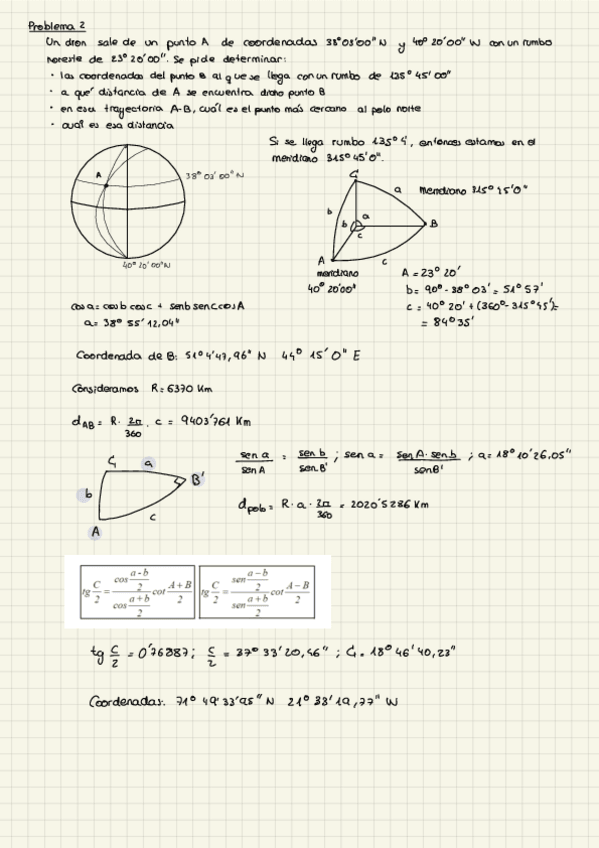 Problema 2
Un dron sale de un punto A de coordenadas 38º03'00''N y 40º20'00''W con un rumbo
noreste de 23º20'00''. Se pide determinar:
· las coordenadas del punto B al que se llega con un rumbo de 135º45'00''
· a que' distancia de A se encuentra dicho punto B
· en esta trayectoria A-B, cuál es el punto más cercano al polo norte
· cual es esa distancia
Si se llega rumbo 135º4', entonces estamos en el
meridiano 315º45'0''.
A
38º03'00''N
40º20'00''N
C
a
b
meridiano 315º15'0''
a
b
c
B
A
c
meridiano
40º20'00''
A = 23º20'
b = 90º - 38º03' = 51º57'
c = 40º20' + (360º - 315º45') =
= 84º35'
cos a = cos b cos c + sen b sen c cos A
a = 38º55'12,04''
Coordenada de B: 51º4'47,96'' N 44º15'0'' E
Consideramos R = 6370 Km
dAB = R · 2π/360 · c = 9403'761 Km
C
a
B'
b
A
c
sen a/sen A = sen b/sen B' ; sen a = sen A · sen b/sen B' ; a = 18º10'26,05''
dpolo = R · a · 2π/360 = 2020'5286 Km
tg C/2 = cos a-b/2 / cos a+b/2 cot A+B/2
tg C/2 = sen a-b/2 / sen a+b/2 cot A-B/2
tg C/2 = 0'76887; C/2 = 37º33'20,46''; C = 18º46'40,23''
Coordenadas: 71º49'33'95'' N 21º33'19,77'' W